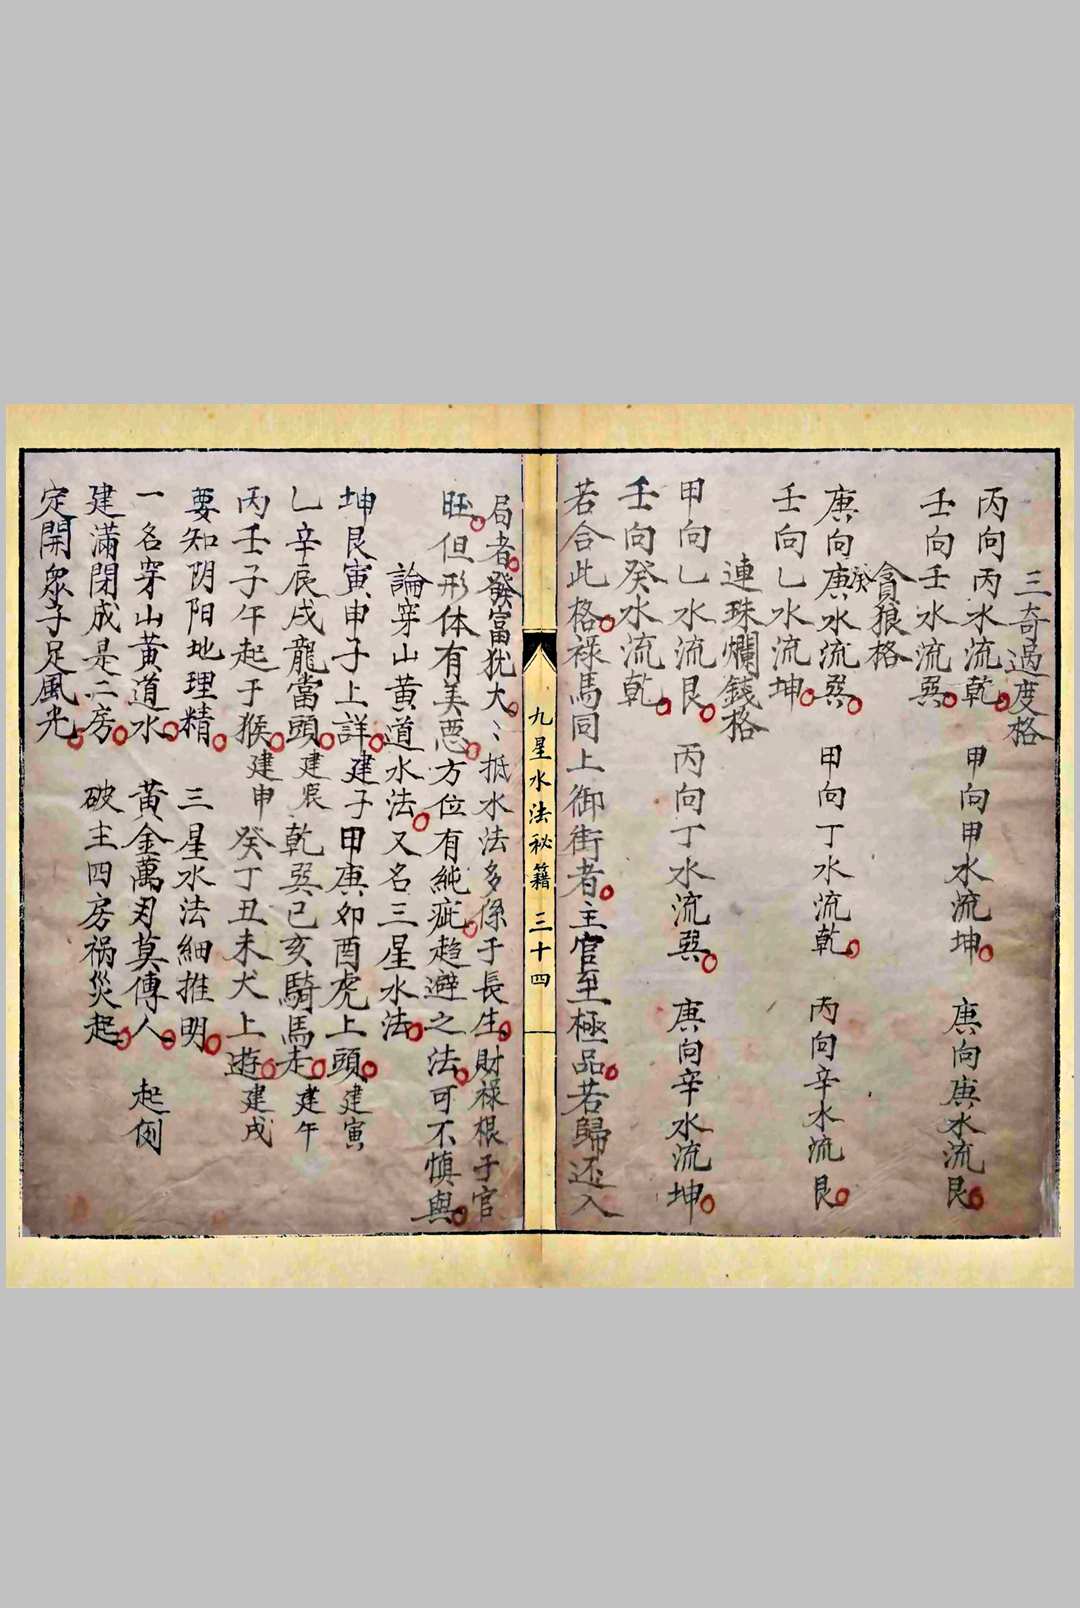 三奇過度格
丙向丙水流乾　甲向甲水流坤　庚向庚水流艮
壬向壬水流巽
貪狼格
庚向庚癸水流巽　甲向丁水流乾　丙向辛水流艮
壬向乙水流坤
連珠爛錢格
甲向乙水流艮　丙向丁水流巽　庚向辛水流坤
壬向癸水流乾
若合此格祿馬同上御街者主官至極品若歸还入
九星水法秘籍 三十四
局者發富犹大〻抵水法多係于長生財祿根子官
旺但形体有美惡方位有純疵趋避之法可不慎與
論穿山黄道水法又名三星水法
坤艮寅申子上詳建子甲庚卯酉虎上頭建寅
乙辛辰戌龍當頭建辰乾巽巳亥騎馬走建午
丙壬子午起于猴建申癸丁丑未犬上遊建戌
要知阴阳地理精　三星水法細推明
一名穿山黄道水　黃金萬刄莫傳人　起例
建滿閉成是二房　破主四房祸災起
定開衆子足風光